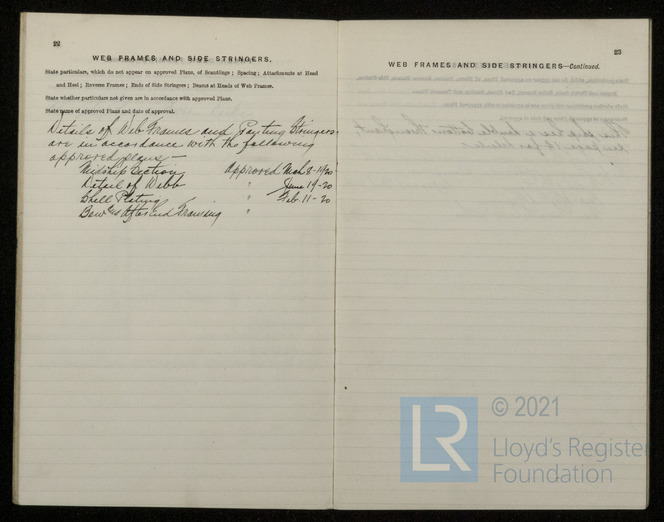 22
WEB FRAMES AND SIDE STRINGERS.
State particulars, which do not appear on approved Plans, of Scantlings; Spacing; Attachments at Head
and Heel; Reverse Frames; Ends of Side Stringers; Beams at Heads of Web Frames.
State whether particulars not given are in accordance with approved Plans.
State name of approved Plans and date of approval.
Details of Web Frames and Panting Stringers
are in accordance with the following
approved plans—
Midship Section Approved Mch 8-1920
Detail of Webb " June 19-20
Shell Plating " Feb. 11-20
Bow & After End Framing "
23
WEB FRAMES AND SIDE STRINGERS—Continued.
LR
© 2021
Lloyd's Register
Foundation